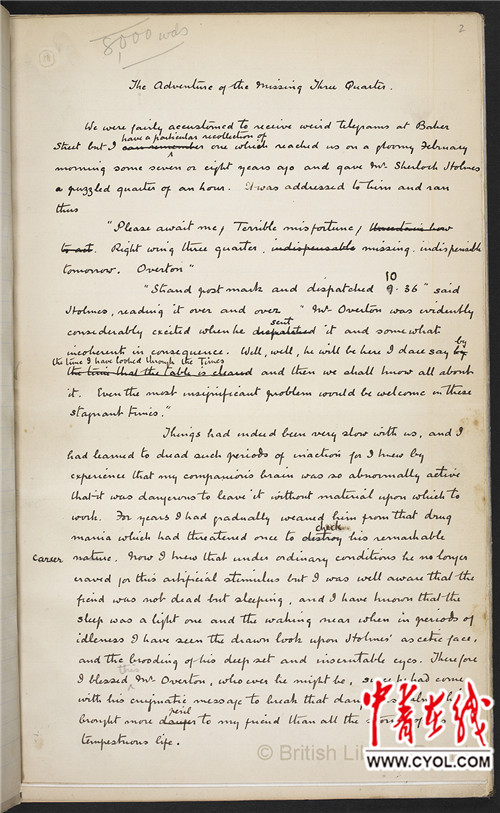 8,000 wds
2
The Adventure of the Missing Three Quarter.
We were fairly accustomed to receive weird telegrams at Baker
have a particular recollection of
Street but I can remember one which reached us on a gloomy February
morning some seven or eight years ago and gave Mr Sherlock Holmes
a puzzled quarter of an hour. It was addressed to him and ran
thus
"Please await me, Terrible misfortune, Uncertain how
to act. Right wing three quarter, indispensable missing. indispensible
tomorrow. Overton"
10
"Strand post mark and dispatched 9.36" said
Holmes, reading it over and over "Mr Overton was evidently
sent
considerably excited when he despatched it and somewhat
incoherent in consequence. Well, well, he will be here I dare say by by
the time I have looked through the Times
the time that the table is cleared and then we shall know all about
it. Even the most insignificant problem would be welcome in these
stagnant times."
Things had indeed been very slow with us, and I
had learned to dread such periods of inaction for I knew by
experience that my companion's brain was so abnormally active
that it was dangerous to leave it without material upon which to
work. For years I had gradually weaned him from that drug
check
mania which had threatened once to destroy his remarkable
career
nature. Now I knew that under ordinary conditions he no longer
craved for this artificial stimulus but I was well aware that the
fiend was not dead but sleeping, and I have known that the
sleep was a light one and the waking near when in periods of
idleness I have seen the drawn look upon Holmes' ascetic face,
and the brooding of his deep set and inscrutable eyes. Therefore
this
I blessed Mr Overton, whoever he might be, since he had come
with his enigmatic message to break that
peril
brought more danger to my friend than all the storms of his
tempestuous life.
© British Li
中青在线
WWW.CYOL.COM